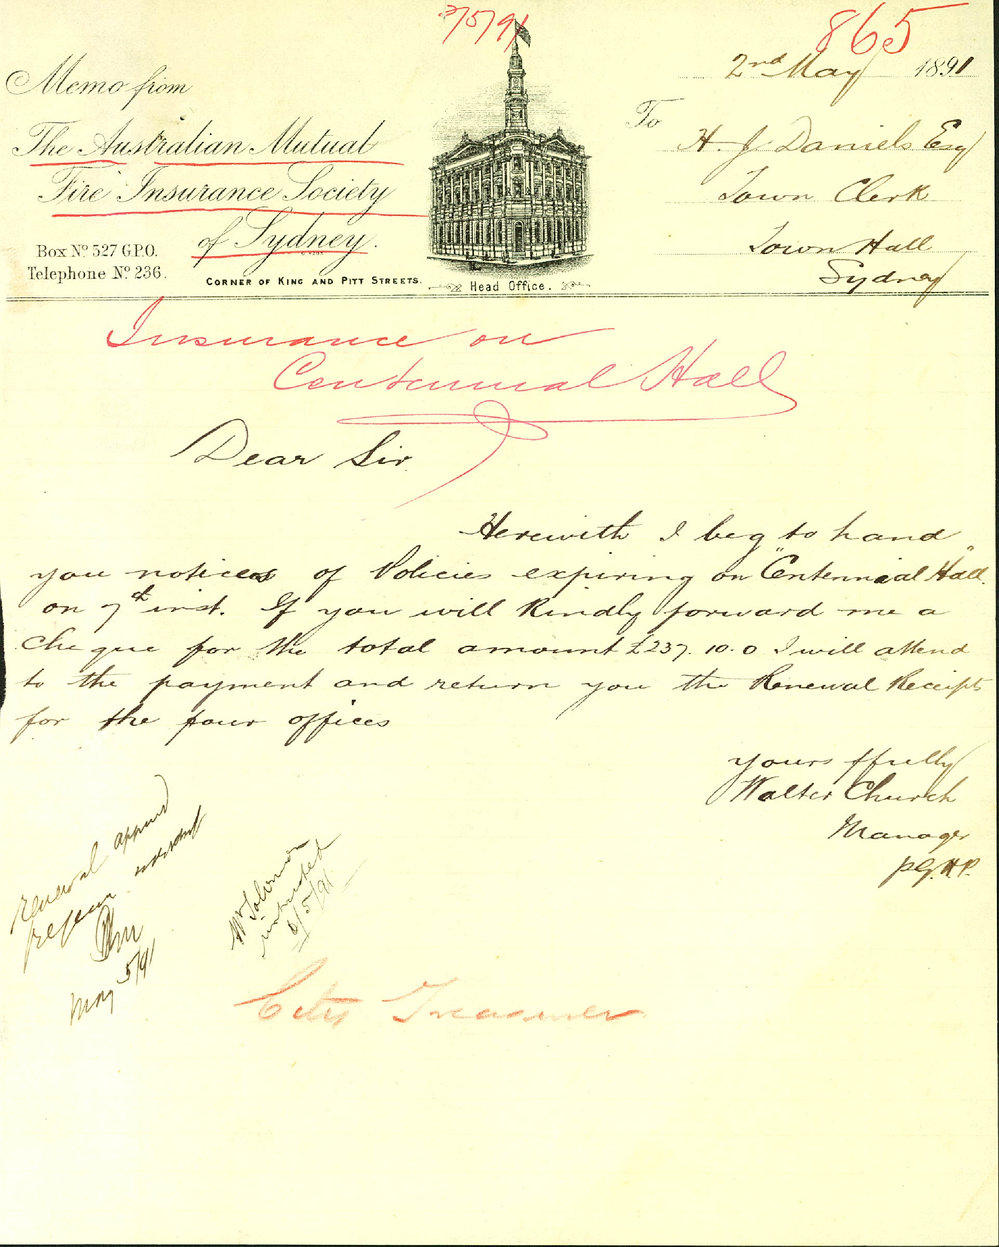 2/5/91
865
2nd May 1891
Memo from
The Australian Mutual
Fire Insurance Society
of Sydney.
Box No 527 G.P.O.
Telephone No 236.
Corner of King and Pitt Streets.
Head Office.
To
H. J. Daniels Esq
Town Clerk
Town Hall
Sydney
Insurance on
Centennial Hall
Dear Sir
Herewith I beg to hand
you notices of Policies expiring on "Centennial Hall"
on 7th inst. If you will kindly forward me a
cheque for the total amount £237.10.0 I will attend
to the payment and return you the Renewal Receipts
for the four offices
yours ffully
Walter Church
Manager
p G.H.P.
renewal
May 5/91
Mr Solomon
instructed
6/5/91
City Treasurer